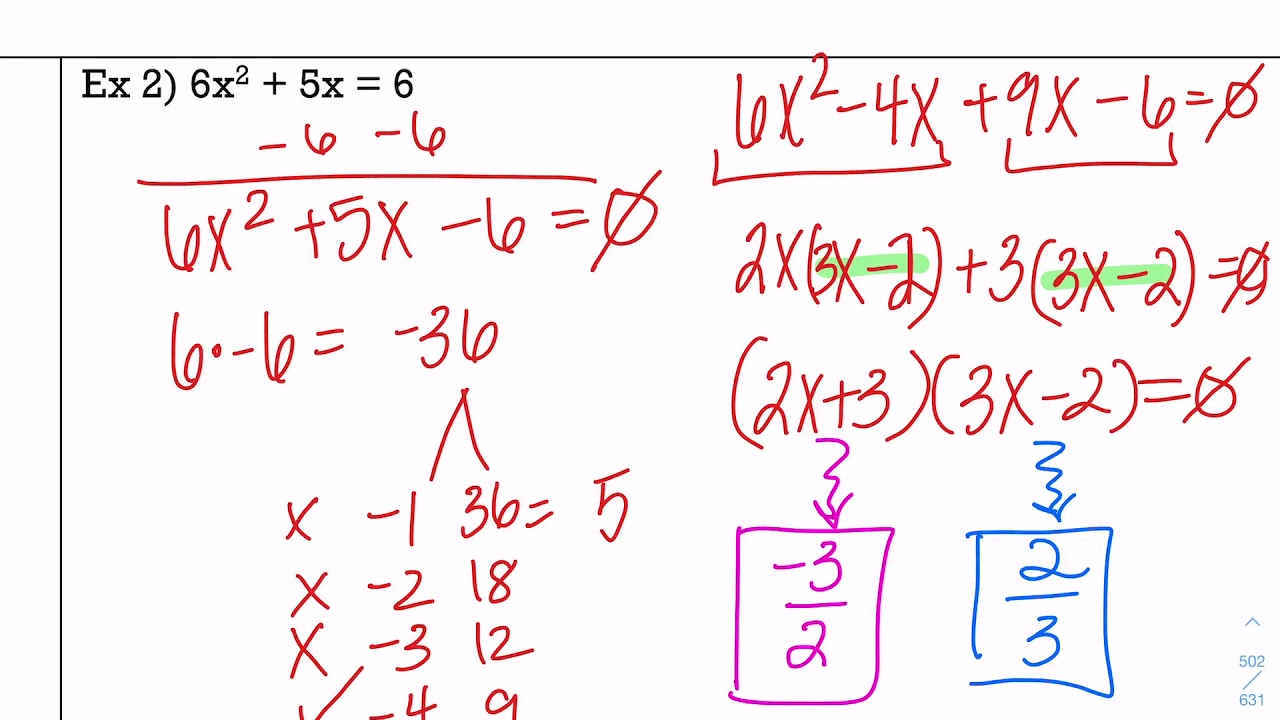 Ex 2) 6x² + 5x = 6
-6 -6
6x² +5x -6 = 0
6·-6 = -36
x -1 36 = 5
x -2 18
x -3 12
✓ -4 9
6x² -4x +9x -6 = 0
2x(3x-2) +3(3x-2) = 0
(2x+3)(3x-2) = 0
-3
2
2
3
502
/
631